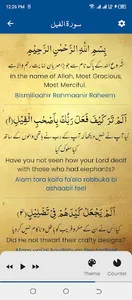 12:26 PM
سورة الفيل
بِسْمِ اللَّهِ الرَّحْمَٰنِ الرَّحِيمِ
شروع اللہ کے پاک نام سے جو بڑا مہربان نہایت رحم والا ہے
In the name of Allah, Most Gracious,
Most Merciful.
Bismillaahir Rahmaanir Raheem
أَلَمْ تَرَ كَيْفَ فَعَلَ رَبُّكَ بِأَصْحَابِ الْفِيلِ (١)
کیا آپ نے نہیں دیکھا کہ آپ کے رب نے ہاتھی والوں کے ساتھ
Have you not seen how your Lord dealt
with those who had elephants?
Alam tara kaifa fa'ala rabbuka bi
ashaabil feel
أَلَمْ يَجْعَلْ كَيْدَهُمْ فِي تَضْلِيلٍ (٢)
Did He not thwart their crafty designs?
Theme
Counter